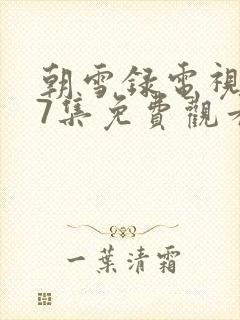 朝雪録電視
7集免費觀看
一葉清霜